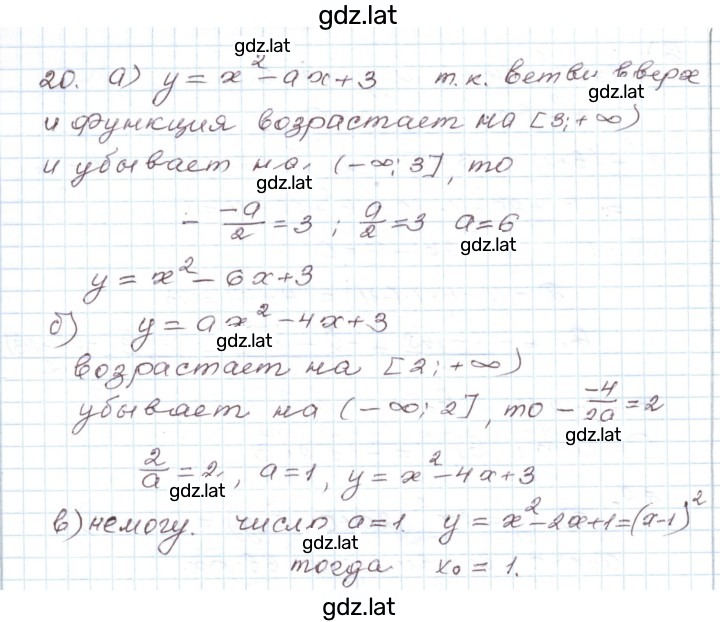 gdz.lat
gdz.lat
20. а) y = x² - ax + 3 т.к. ветви вверх
gdz.lat
и функция возрастает на [3; +∞)
и убывает на (-∞; 3], то
gdz.lat
- -a/2 = 3 ; a/2 = 3 a = 6
gdz.lat
y = x² - 6x + 3
б) y = ax² - 4x + 3
gdz.lat
возрастает на [2; +∞)
убывает на (-∞; 2], то - -4/2a = 2
gdz.lat
2/a = 2, a = 1, y = x² - 4x + 3
gdz.lat
в) немогу. число a = 1. y = x² - 2x + 1 = (x - 1)²
gdz.lat
тогда x₀ = 1.
gdz.lat